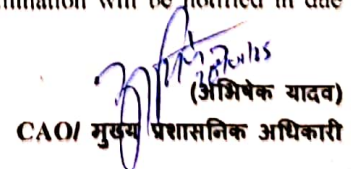 will be notified in due
(अभिषेक यादव)
CAO/ मुख्य प्रशासनिक अधिकारी